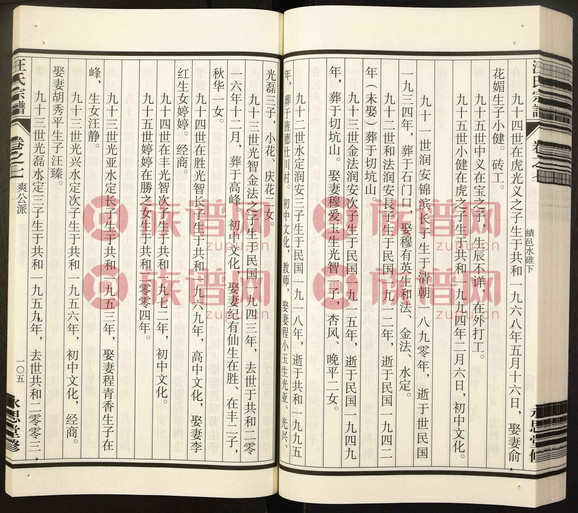 績邑水碓下
九十四世在虎光义之子生于共和一九六八年五月十六日，娶妻俞，
花媚生子小健。砖工。
九十五世中义在宝之子，生辰不详，在外打工。
九十五世小健在虎之子生于共和一九九四年二月六日，初中文化。
九十一世润安锦滨长子生于清朝一八九零年，逝于世民国
一九三四年，葬于石门口，娶穆有英生和法、金法、水定。
九十二世和法润安長子生于民国一九一二年，逝于民国一九四九
年（未娶）葬于切坑山。
九十二世金法润安次子生于民国一九一五年，逝于民国一九四二
年，葬于切坑山。娶妻穆爱玉生光智一子，杏风、晚平二女。
九十二世水定润安三子生于民国
年，葬于旌德仕川村。初中文化，教师，娶妻程小玉生光亚、光兴、
光磊三子，小花、庆花二女。
九十三世光智金法之子生于民国一九四三年，去世于共和二零
一六年十二月，葬于高峰，初中文化，娶妻纪有仙生在胜、在丰二子，
秋华一女。
九十四世在胜光智长子生于共和一九六九年，高中文化，娶妻李
红生女婷婷。经商。
九十四世在丰光智次子生于共和一九七二年，初中文化。
九十五世婷婷在勝之女生于共和二零零四年。
九十三世光亚水定长子生于共和一九五三年，娶妻程青香生子在
峰，生女汪静。
九十三世光兴水定次子生于共和一九五六年，初中文化，经商。
娶妻胡秀平生子汪臻。
九十三世光磊水定三子生于共和一九五九年，去世共和二零零三，
汪氏宗譜
卷之七
爽公派
一〇五
永思堂修
永思堂修
族谱网
zupu.cn
族谱网
zupu.cn
族谱网
zupu.cn
族谱网
zupu.cn